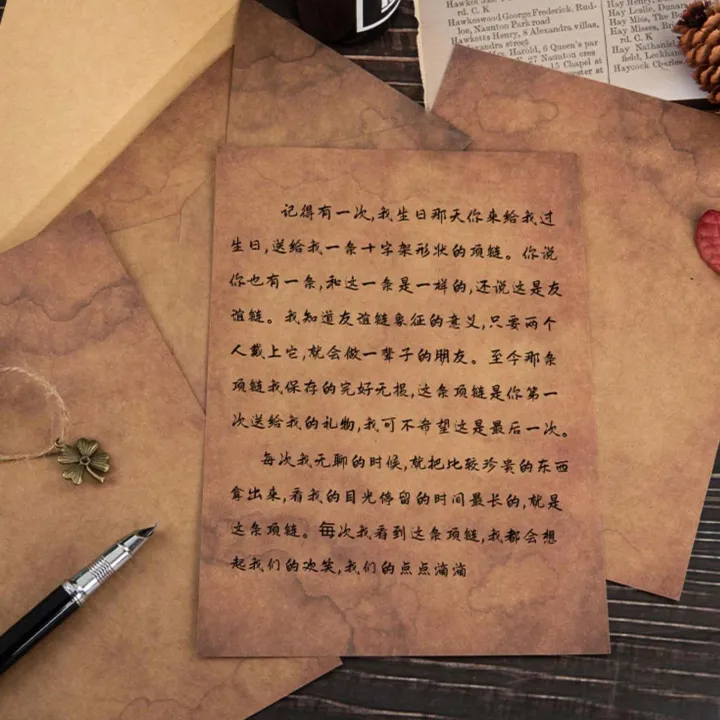 Hawkeswood George Frederick, Bud-
Hawketts Henry, 8 Alexandra villas,
记得有一次,我生日那天你来给我过
生日,送给我一条十字架形状的项链。你说
你也有一条,和这一条是一样的,还说这是友
谊链。我知道友谊链象征的意义,只要两个
人戴上它,就会做一辈子的朋友。至今那条
项链我保存的完好无损,这条项链是你第一
次送给我的礼物,我可不希望这是最后一次。
每次我无聊的时候,就把比较珍贵的东西
拿出来,看我的目光停留的时间最长的,就是
这条项链。每次我看到这条项链,我都会想
起我们的欢笑,我们的点点滴滴